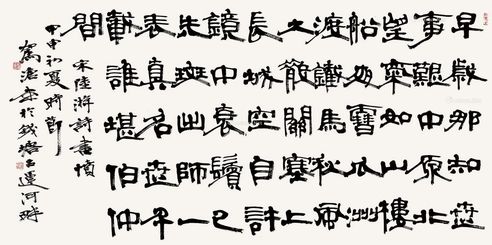 早歲那知世
事艱中原北
望氣如山樓
船夜雪瓜洲
渡鐵馬秋風
大散關塞上
長城空自許
鏡中衰鬢已
先斑出師一
表真名世千
載誰堪伯仲
間
宋陸游詩書憤
甲申初夏時節
於錢塘古運河畔